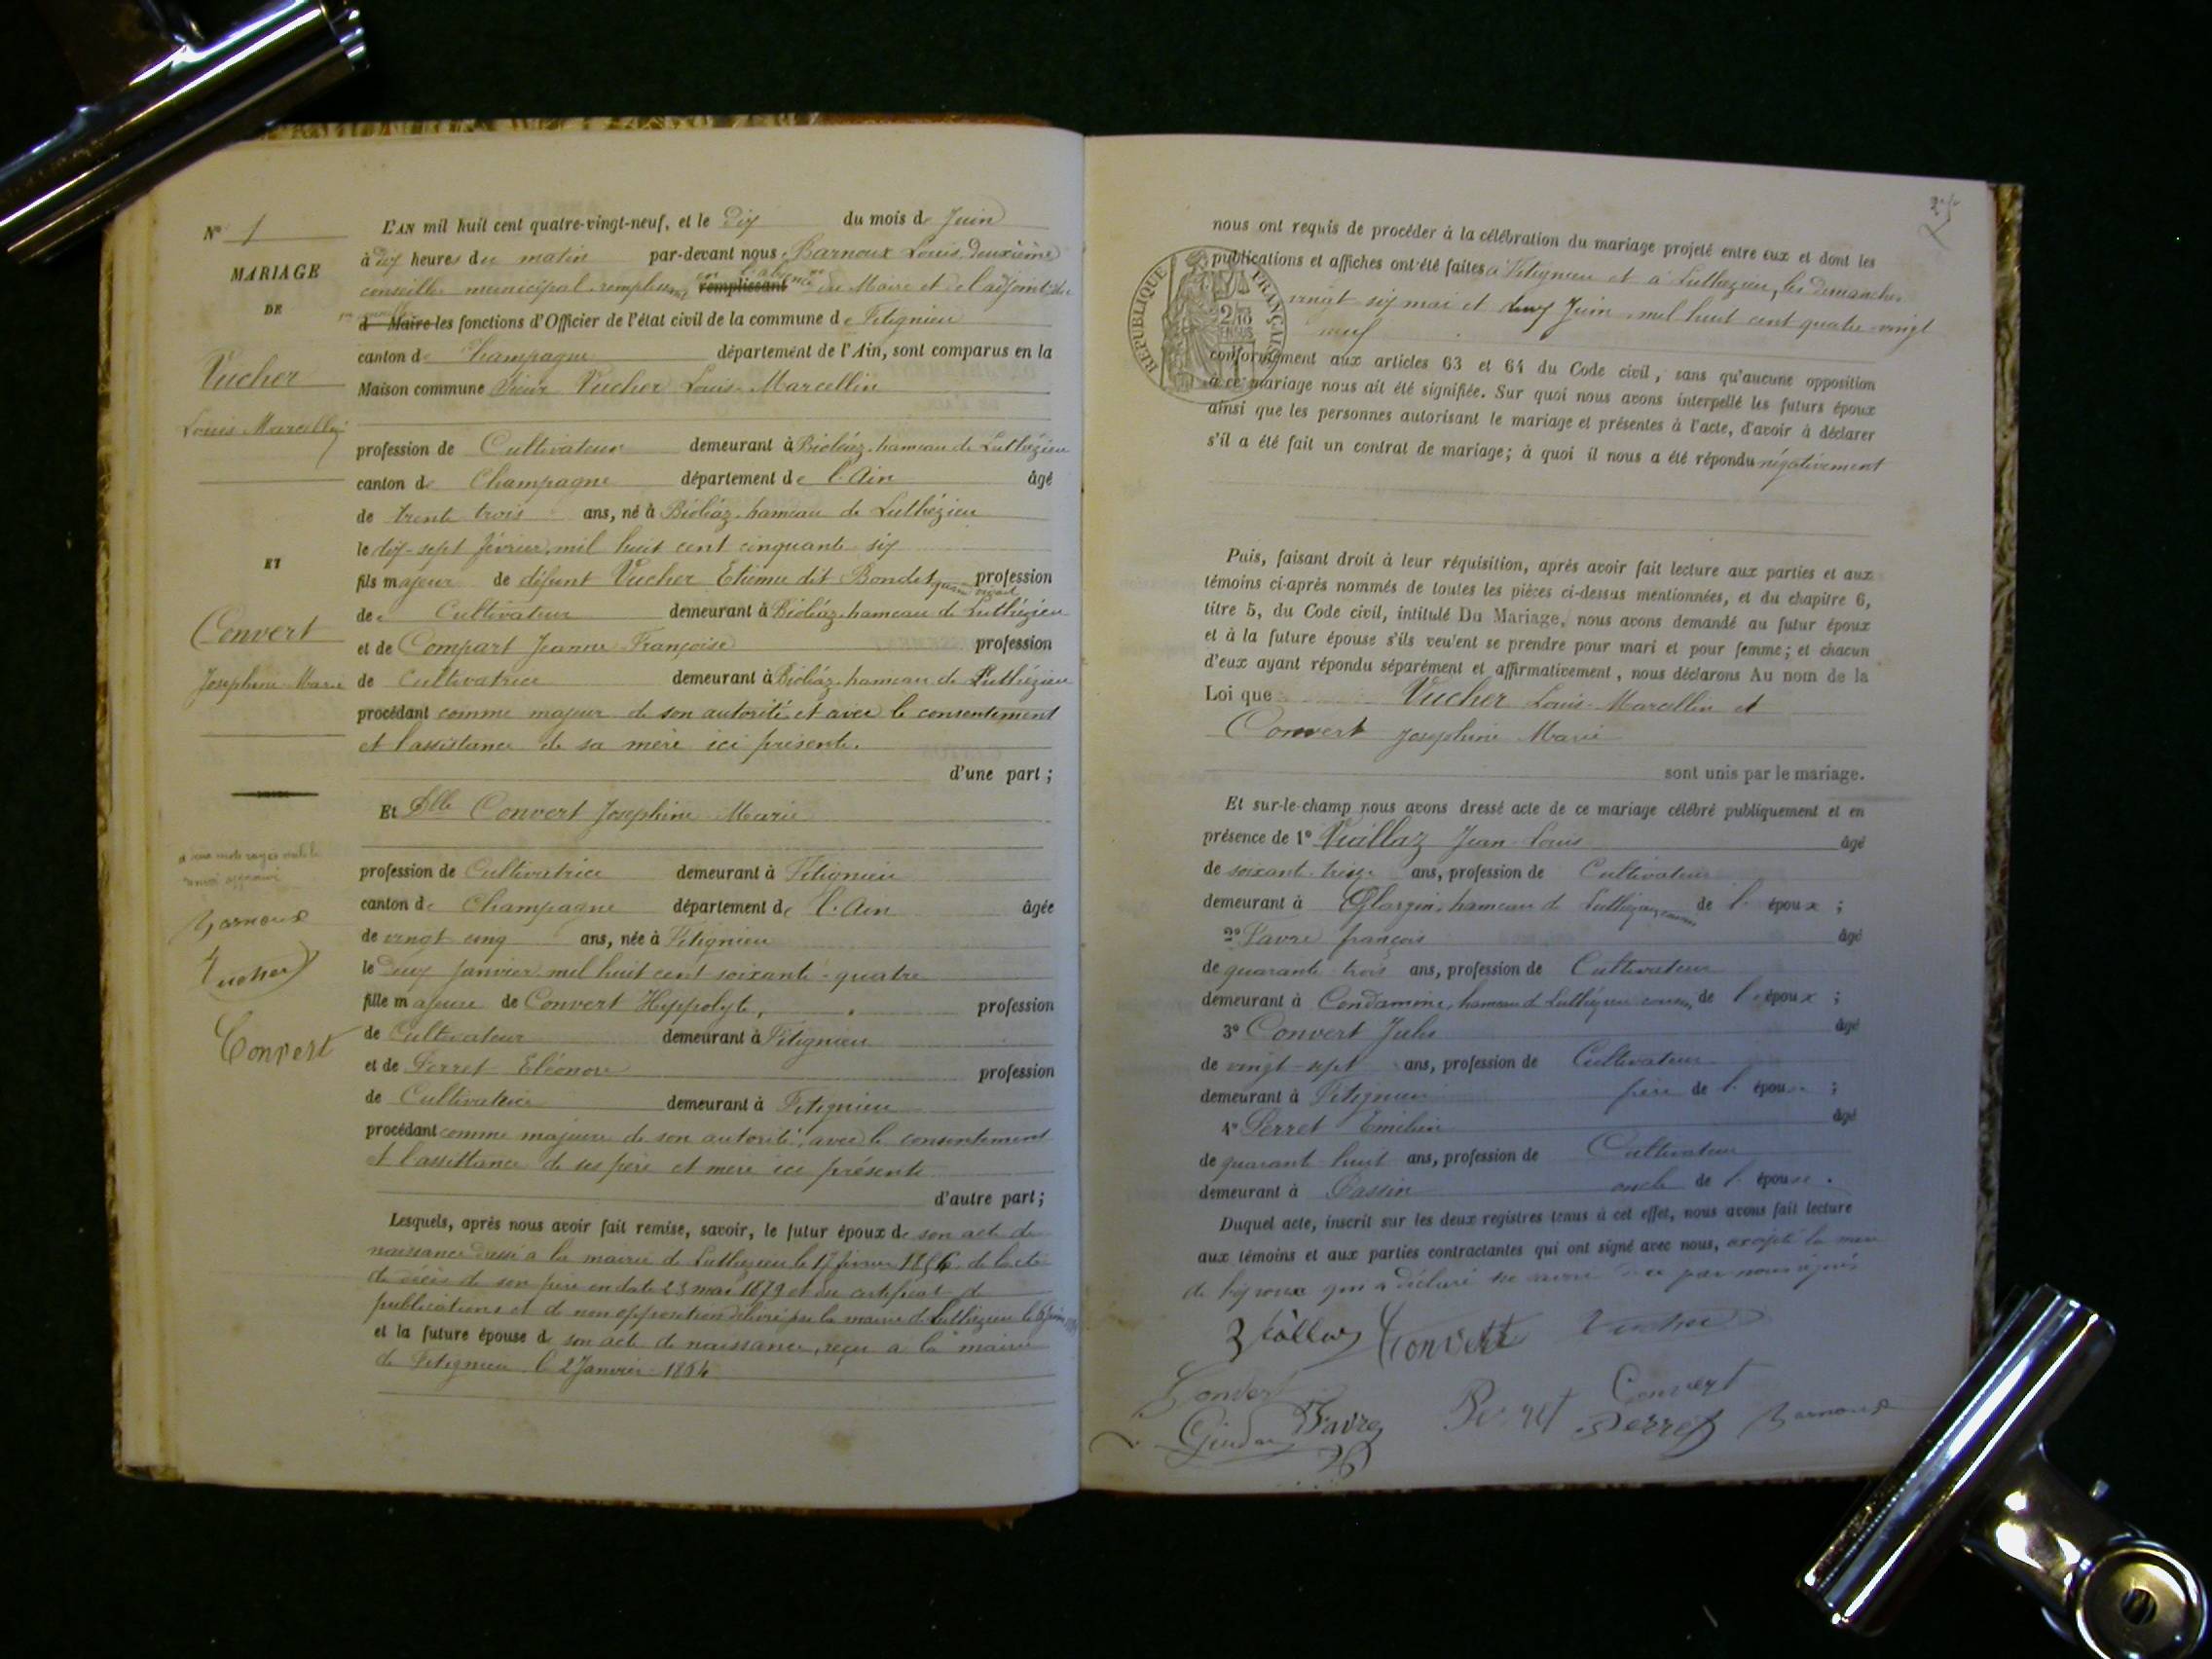 N° 1
MARIAGE
DE
Vucher
Louis Marcellin
ET
Convert
Josephine Marie
Barnoux
Vucher
Convert
L'AN mil huit cent quatre-vingt-neuf, et le dix du mois de Juin
à dix heures du matin par-devant nous Barnoux Louis, deuxième
conseiller municipal remplissant remplissant du Maire et de l'adjoint
d Maire les fonctions d'Officier de l'état civil de la commune de Fitignieu
canton de Champagne département de l'Ain, sont comparus en la
Maison commune Sieur Vucher Louis-Marcellin
profession de Cultivateur demeurant à Bioléaz, hameau de Luthézieu
canton de Champagne département de l'Ain âgé
de trente trois ans, né à Bioléaz, hameau de Luthézieu
le dix-sept février mil huit cent cinquante six
fils majeur de défunt Vucher Etienne dit Bondet profession
de Cultivateur demeurant à Bioléaz, hameau de Luthézieu
et de Compart Jeanne Françoise profession
de Cultivatrice demeurant à Bioléaz, hameau de Luthézieu
procédant comme majeur de son autorité et avec le consentement
et l'assistance de sa mère ici présente.
d'une part ;
Et Dlle Convert Josephine Marie
profession de Cultivatrice demeurant à Fitignieu
canton de Champagne département de l'Ain âgée
de vingt cinq ans, née à Fitignieu
le deux janvier mil huit cent soixante-quatre
fille majeure de Convert Hyppolyte, profession
de Cultivateur demeurant à Fitignieu
et de Perret Eléonore profession
de Cultivatrice demeurant à Fitignieu
procédant comme majeure de son autorité, avec le consentement
et l'assistance de ses père et mère ici présents
d'autre part ;
Lesquels, après nous avoir fait remise, savoir, le futur époux de son acte de
naissance dressé à la mairie de Luthézieu le 17 février 1856, de l'acte
de décès de son père en date 23 mai 1879 et du certificat de
publications et de non opposition délivré par la mairie de Luthézieu le
et la future épouse de son acte de naissance, reçu à la mairie
de Fitignieu le 2 Janvier 1864
nous ont requis de procéder à la célébration du mariage projeté entre eux et dont les
publications et affiches ont été faites à Fitignieu et à Luthézieu, les dimanches
vingt-six mai et deux Juin, mil huit cent quatre-vingt
neuf
RÉPUBLIQUE FRANÇAISE
conformément aux articles 63 et 64 du Code civil, sans qu'aucune opposition
à ce mariage nous ait été signifiée. Sur quoi nous avons interpellé les futurs époux
ainsi que les personnes autorisant le mariage et présentes à l'acte, d'avoir à déclarer
s'il a été fait un contrat de mariage ; à quoi il nous a été répondu négativement
Puis, faisant droit à leur réquisition, après avoir fait lecture aux parties et aux
témoins ci-après nommés de toutes les pièces ci-dessus mentionnées, et du chapitre 6,
titre 5, du Code civil, intitulé Du Mariage, nous avons demandé au futur époux
et à la future épouse s'ils veulent se prendre pour mari et pour femme ; et chacun
d'eux ayant répondu séparément et affirmativement, nous déclarons Au nom de la
Loi que Vucher Louis-Marcellin et
Convert Josephine Marie
sont unis par le mariage.
Et sur-le-champ nous avons dressé acte de ce mariage célébré publiquement et en
présence de 1° Viallaz Jean-Louis âgé
de soixante treize ans, profession de Cultivateur
demeurant à hameau de de l'époux ;
2° Favre françois âgé
de quarante trois ans, profession de Cultivateur
demeurant à Condamine, hameau de Luthézieu de l'époux ;
3° Convert Jules âgé
de vingt-sept ans, profession de Cultivateur
demeurant à Fitignieu frère de l'épouse ;
4° Perret Emilien âgé
de quarante huit ans, profession de Cultivateur
demeurant à Passin oncle de l'épouse.
Duquel acte, inscrit sur les deux registres tenus à cet effet, nous avons fait lecture
aux témoins et aux parties contractantes qui ont signé avec nous, excepté la mère
de l'époux qui a déclaré ne savoir
Convert Vucher
Convert Convert
Favre Perret Perret Barnoux